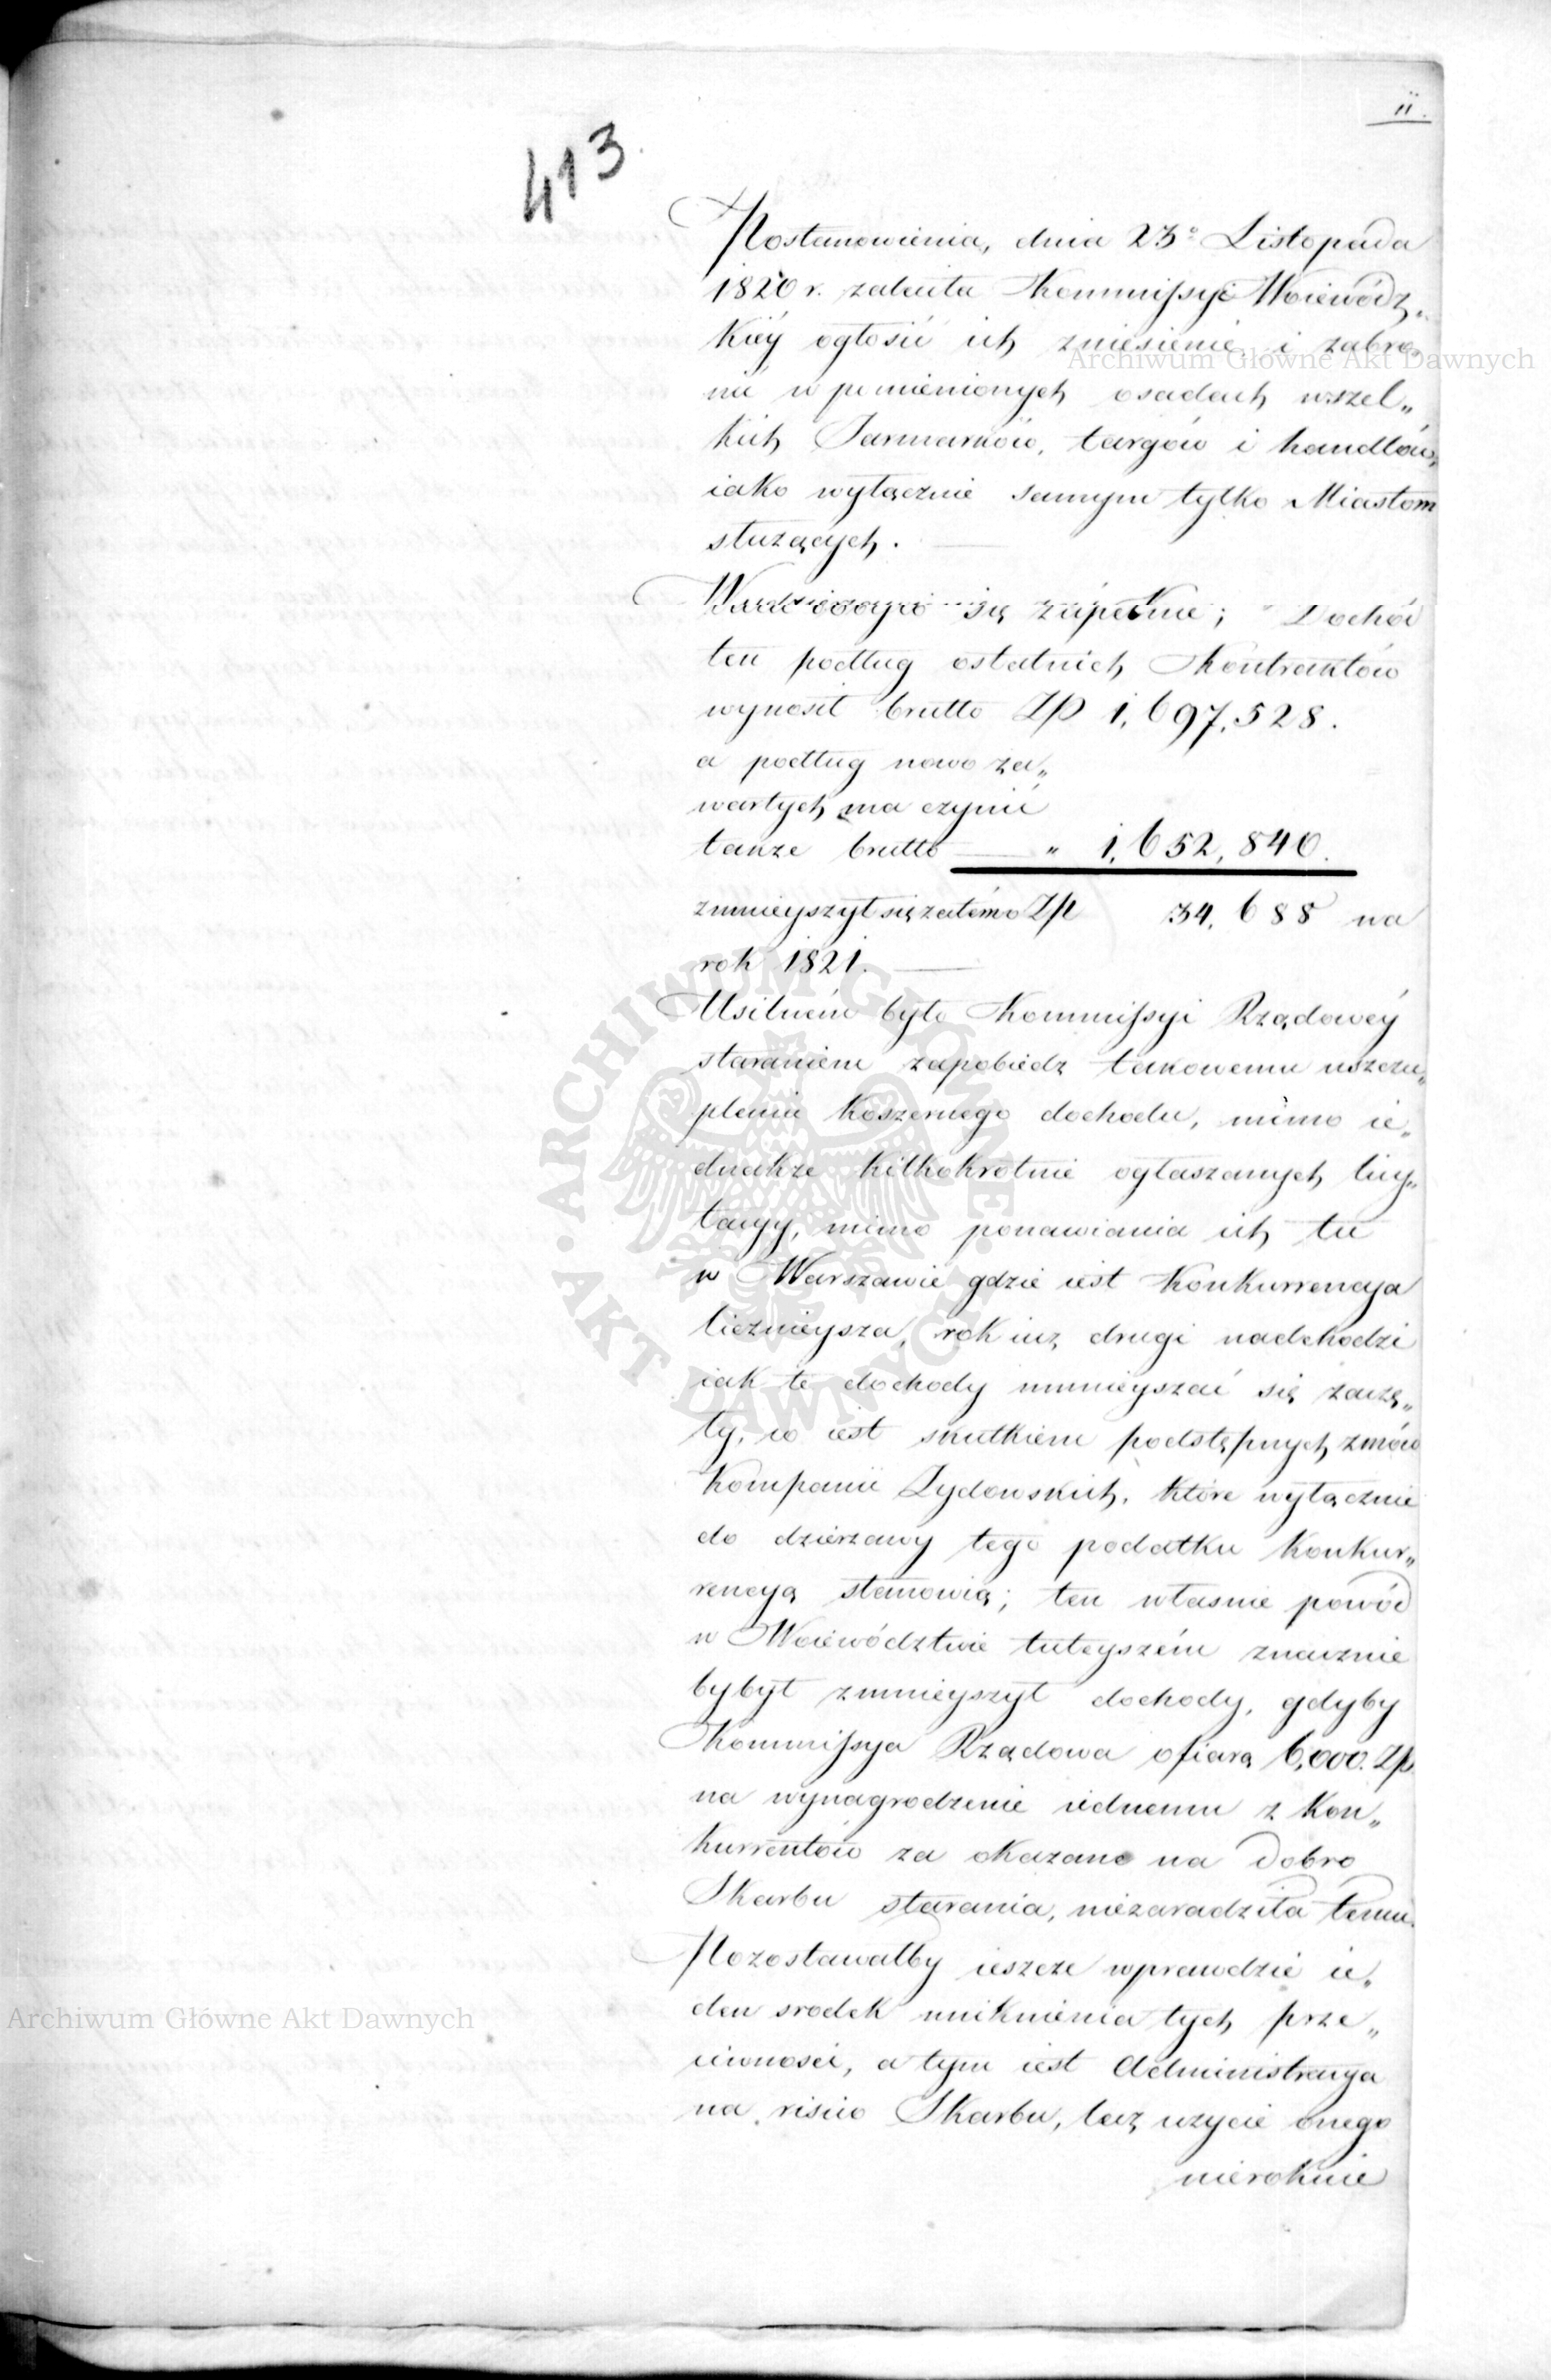 11.
413.
Postanowienia, dnia 23º Listopada
1820 r. zaleciła Kommissyi Woiewódz„
kiéy ogłosić ich zniesienie i zabro„
Archiwum Główne Akt Dawnych
nić w pomienionych osadach wszel„
kich Jarmarków, targów i handlów,
iako wyłącznie samym tylko Miastom
służących.
się zupełnie; Dochód
ten podług ostatnich Kontraktów
wynosił brutto Zp 1,697,528.
a podług nowo za„
wartych ma czynić
także brutto — „ 1,652,840.
zmnieyszył się zatém o Zp 34,688 na
rok 1821.
Usilném było Kommissyi Rządowéy
staraniem zapobiedz takowemu uszczu„
pleniu koszernego dochodu, mimo ie„
dnakże kilkokrotnie ogłaszanych licy„
tacyy, mimo ponawiania ich tu
w Warszawie gdzie iest Konkurrencya
licznieysza, rok iuż drugi nadchodzi
iak te dochody mnieyszać się zaczę„
ły, co iest skutkiem podstępnych zmów
Kompanii Żydowskich, które wyłącznie
do dzierżawy tego podatku Konkur„
rencyą stanowią; ten własnie powód
w Woiewództwie tuteyszém znacznie
byłby zmnieyszył dochody, gdyby
Kommissya Rządowa ofiarą 6,000. Zp
na wynagrodzenie iednemu z Kon„
kurrentów za okazane na dobro
Skarbu starania, niezaradziła temu.
Pozostawałby ieszcze wprawdzie ie„
den srodek uniknienia tych prze„
Archiwum Główne Akt Dawnych
ciwności, a tym iest Administracya
na risico Skarbu, lecz użycie onego
nierokuie
ARCHIWUM GŁÓWNE · AKT DAWNYCH ·